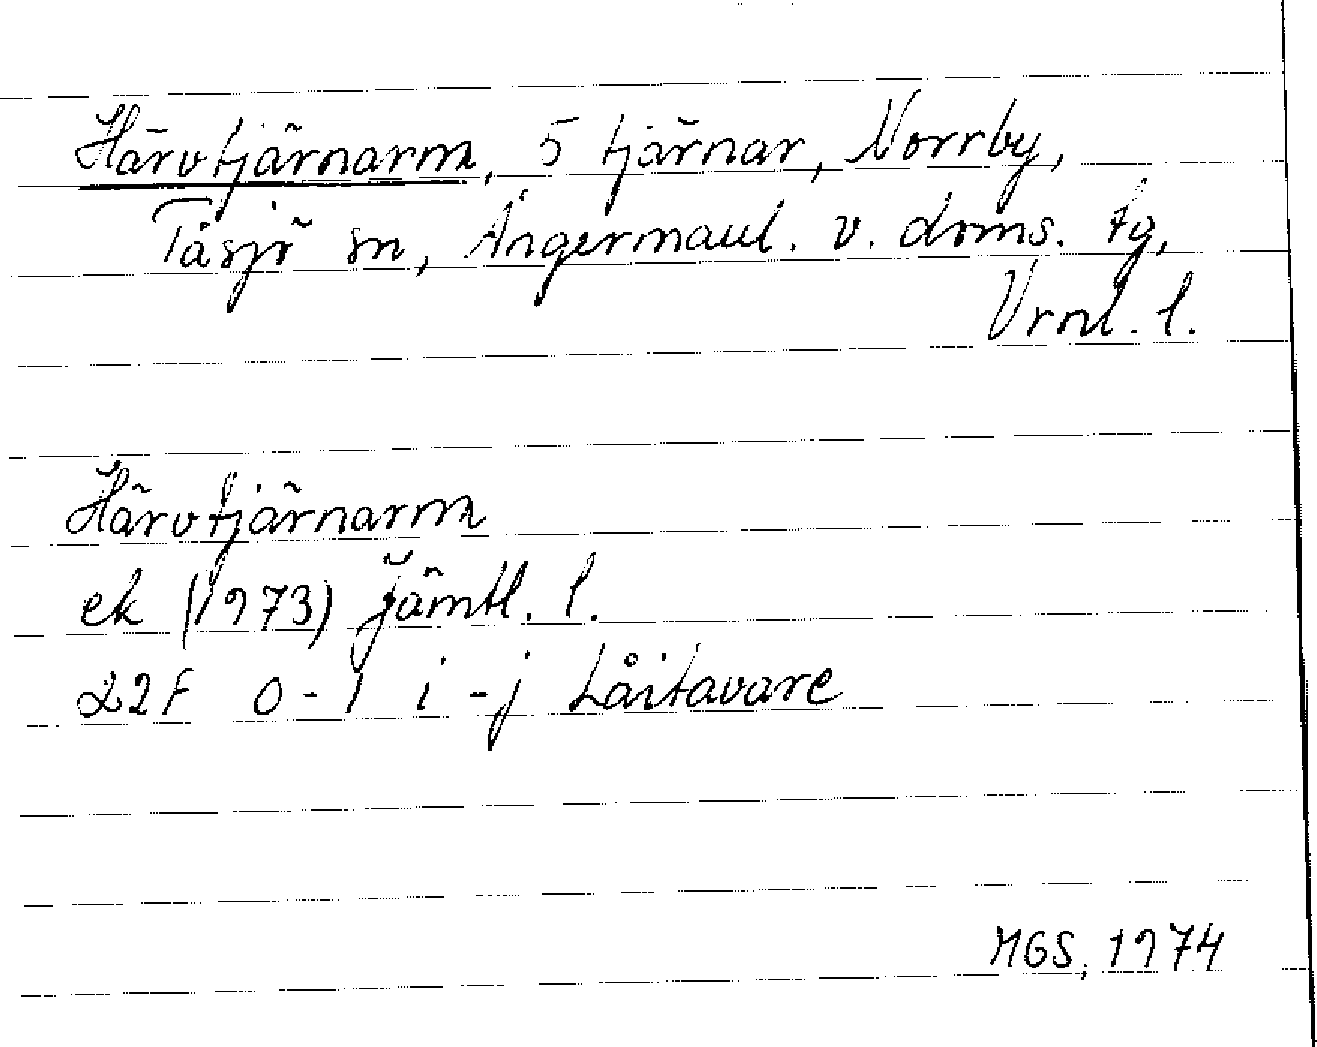 Härvtjärnarna, 5 tjärnar, Norrby,
Tåsjö sn, Ångermanl. v. doms. tg,
Vrnl. l.
Härvtjärnarna
ek (1973) Jämtl. l.
22F 0-1 i-j Låitavare
MGS, 1974